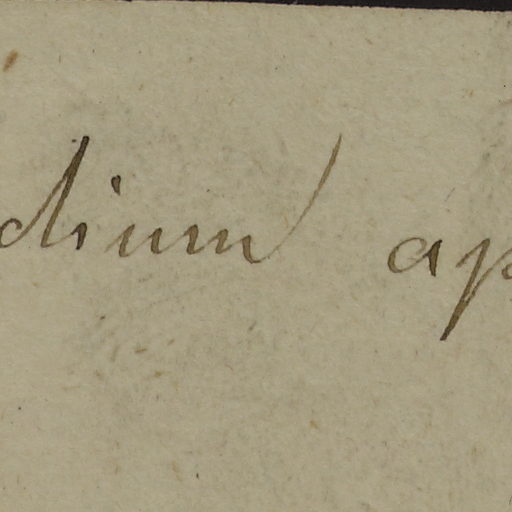 dium ap